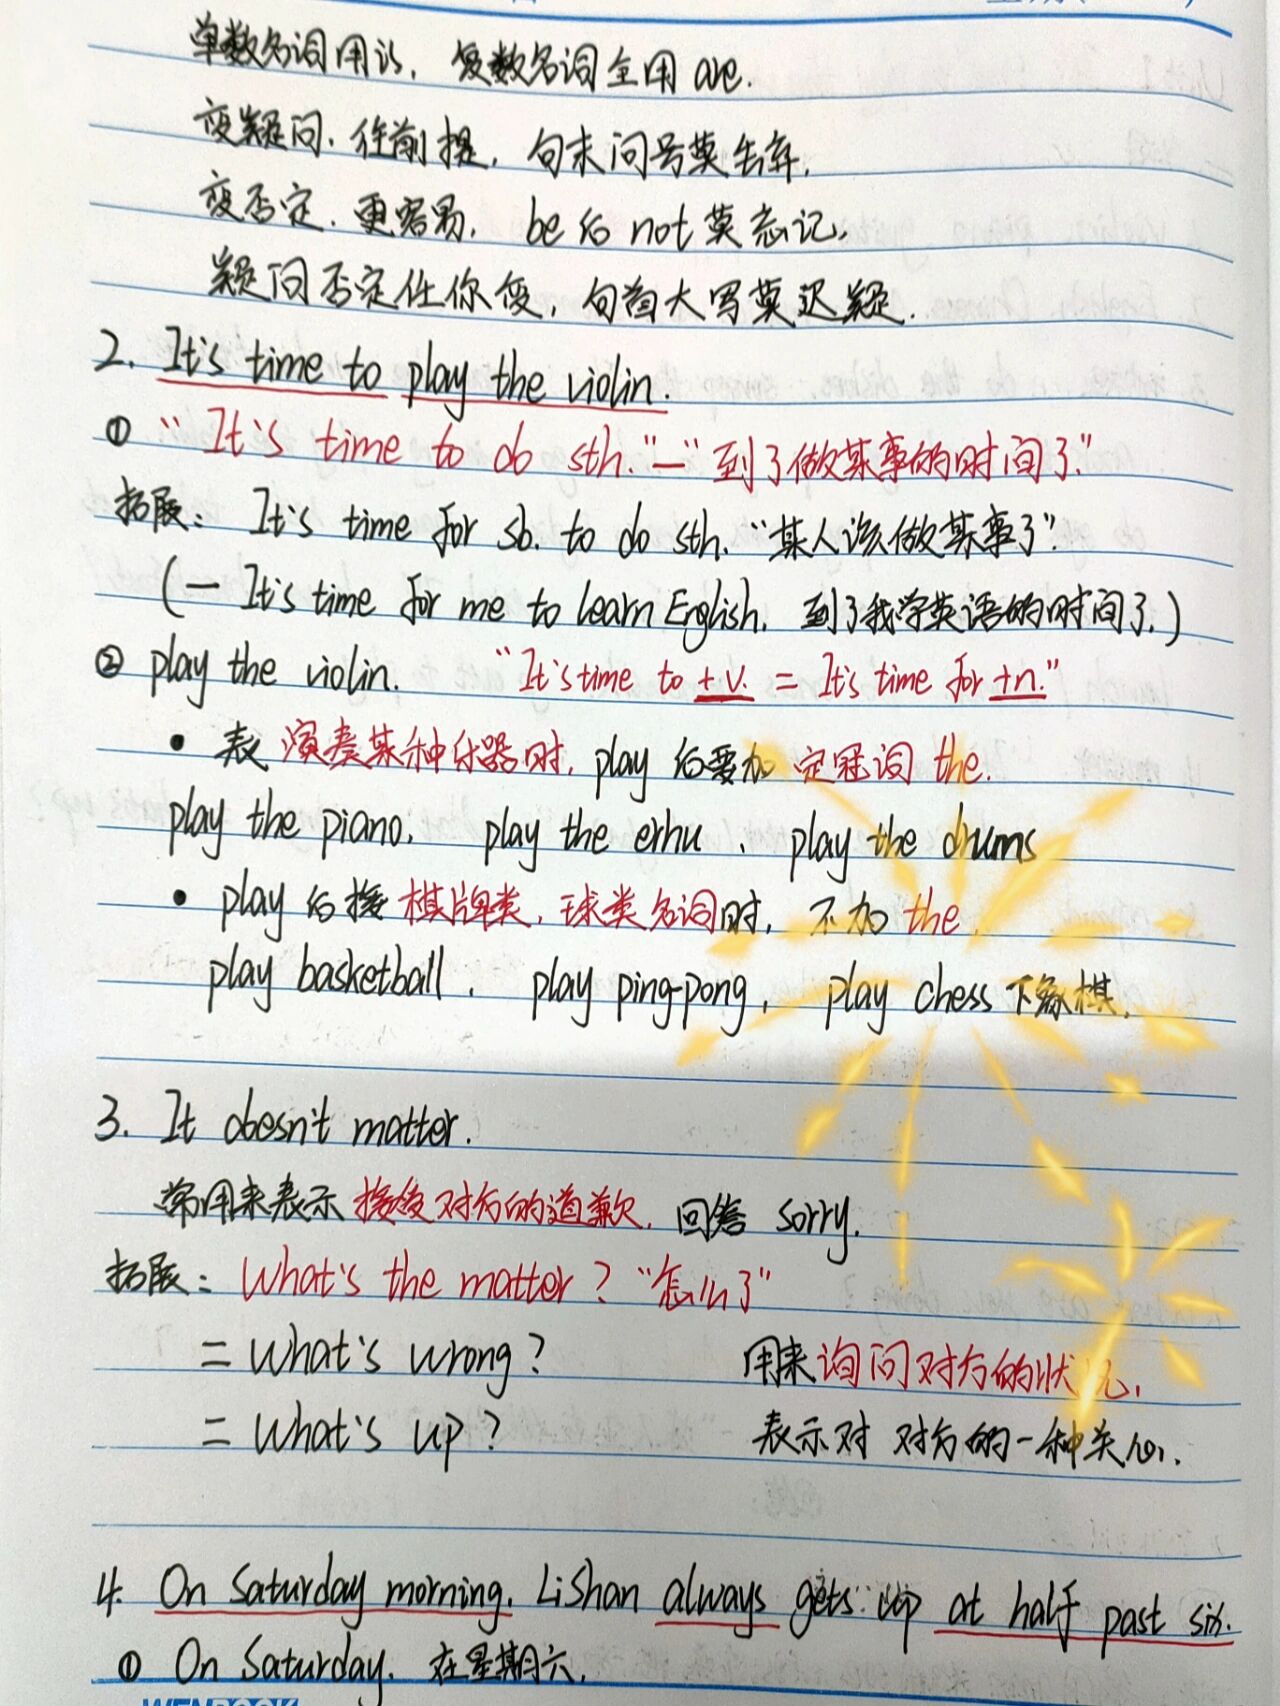 单数名词用is, 复数名词全用are.
变疑问. 往前提, 句末问号莫丢弃.
变否定. 更容易, be后not莫忘记.
疑问否定任你变, 句首大写莫迟疑.
2. It's time to play the violin.
① "It's time to do sth."一"到了做某事的时间了."
拓展: It's time for sb. to do sth. "某人该做某事了"
(一 It's time for me to learn English. 到了我学英语的时间了.)
② play the violin. "It's time to +v. = It's time for +n."
• 表演奏某种乐器时, play后要加定冠词the.
play the piano. play the erhu 、 play the drums
• play后接棋牌类, 球类名词时, 不加the.
play basketball 、 play ping-pong, play chess 下象棋.
3. It doesn't matter.
常用来表示接受对方的道歉, 回答 sorry.
拓展: What's the matter? "怎么了"
= What's wrong? 用来询问对方的状况,
= What's up? 表示对对方的一种关心.
4. On Saturday morning, LiShan always gets up at half past six.
① On Saturday. 在星期六.